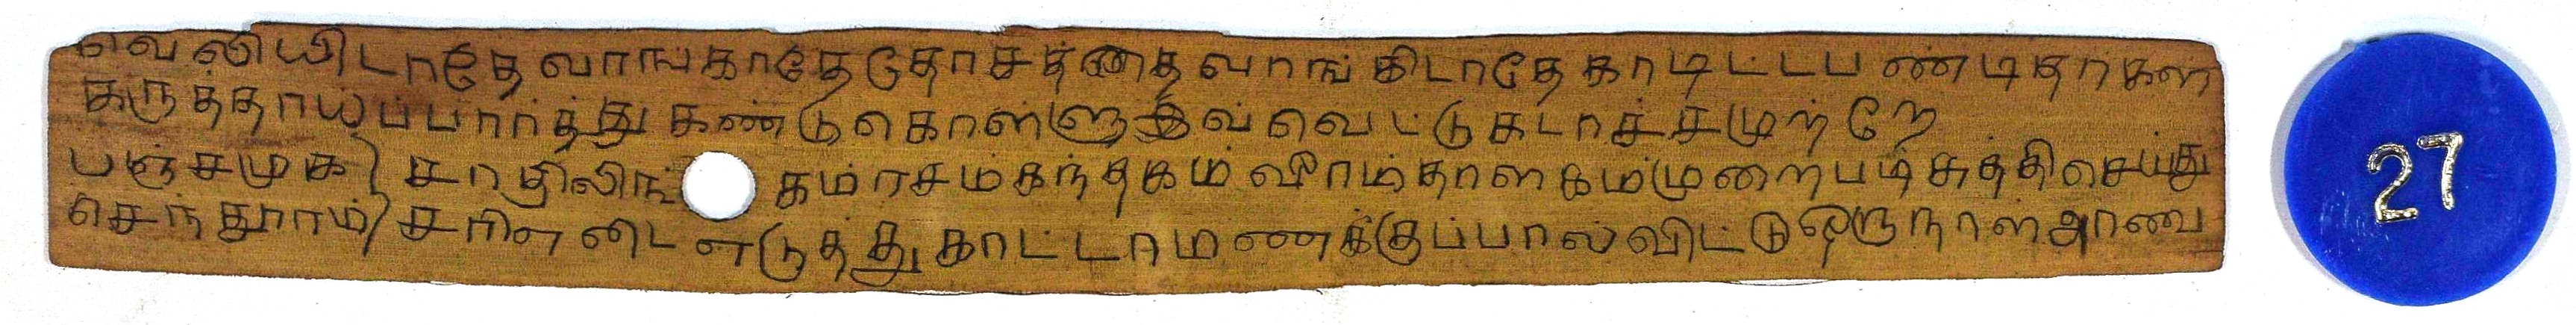 வெலியிடாதே வாஙகாதே தோசத்தை வாங் கிடாதே காடிட்டப ண்டிதர்கள்
கருத்தாய்ப்பார்த்து கண்டுகொள்ளுஇவ் வெட்டுகடாச்சமுற்றே
பஞ்சமுக) சாதிலிங் கம்ரசம்கந்தகம் வீரம்தாளகம்முறைபடி சுத்திசெய்து
செந்தூரம்) சரினிடை எடுத்து காட்டாமணக்குப்பால்விட்டு ஒருநாள்அரை
27